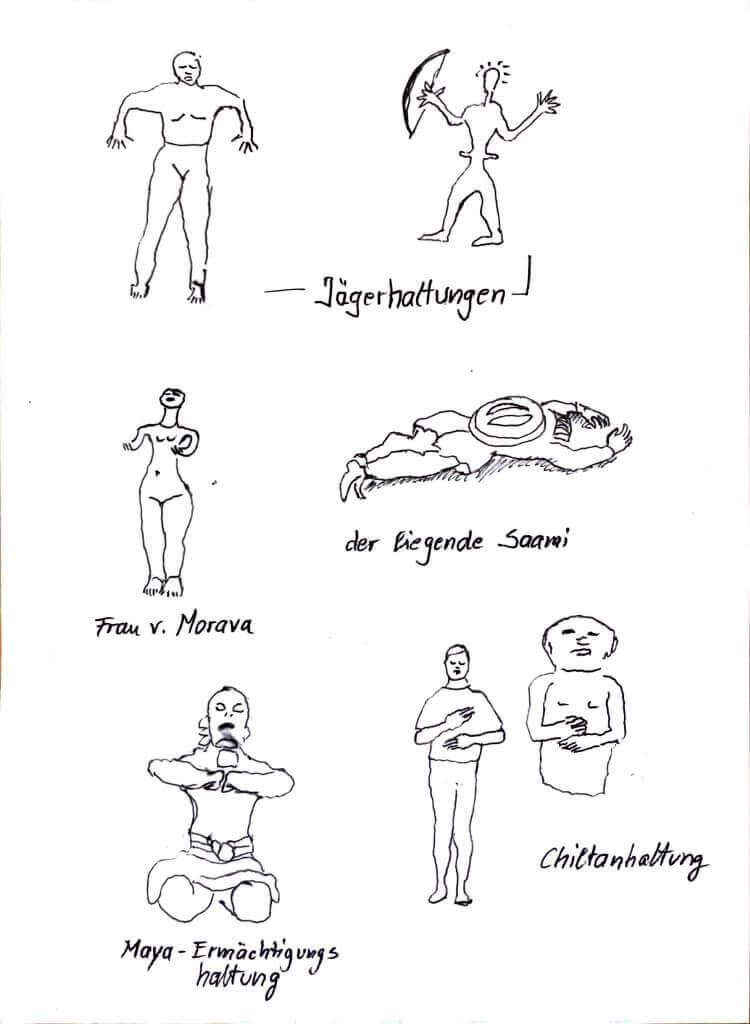 Jägerhaltungen
der liegende Saami
Frau v. Morava
Chiltanhaltung
Maya-Ermächtigungs
haltung